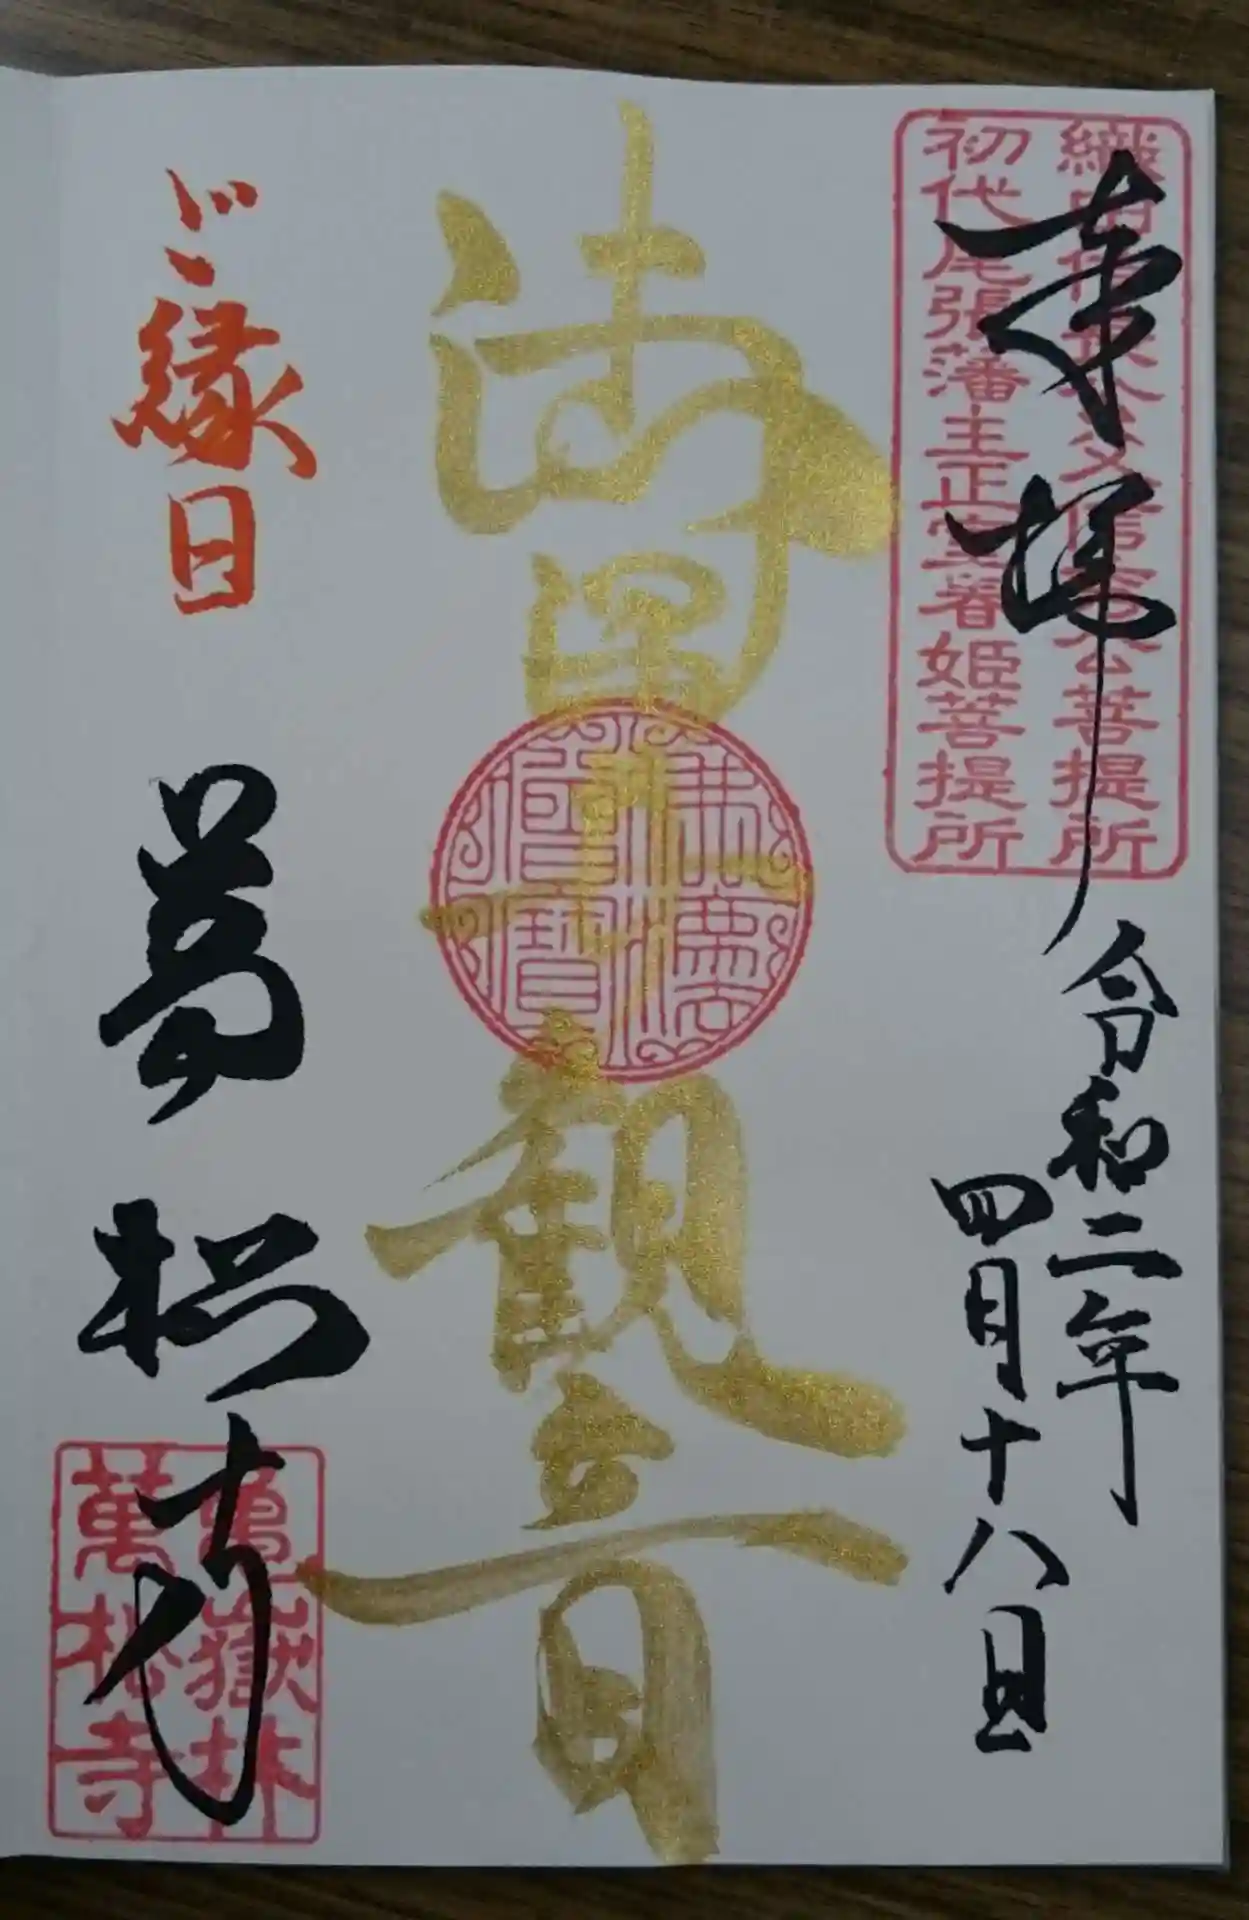 奉拝
織田信長公父信秀公菩提所
初代尾張藩主正室春姫菩提所
令和二年
四月十八日
身代
観音
ご縁日
萬松寺
亀嶽林
萬松寺